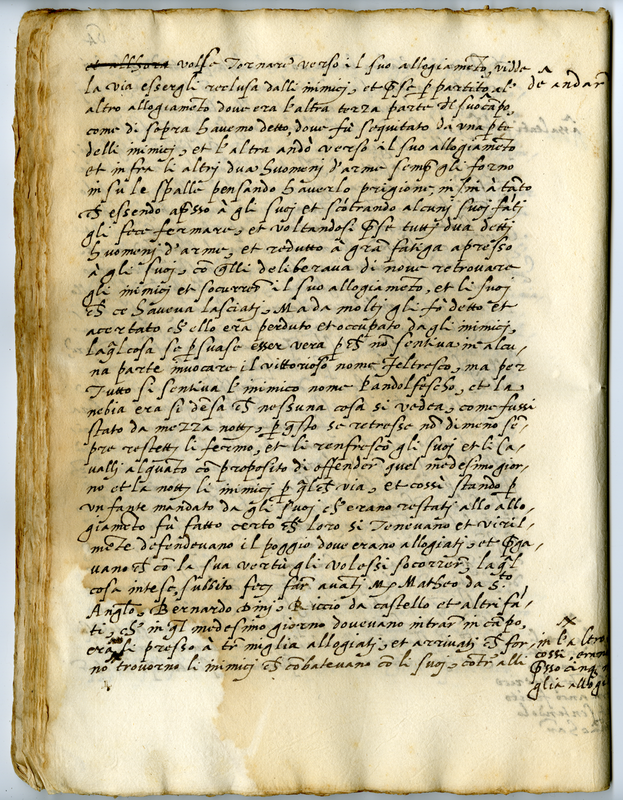 et allhora volse tornare verso il suo allogiamẽto, vidde
la via essergli reclusa dalli inimicj, et p̃se p partito al
de andar
altro allogiamẽto dove era l'altra terza parte dl suo cãpo,
come di sopra havemo detto, dove fù sequitato da una p̃te
delli inimicj, et l'altra andò verso il suo allogiamẽto
et infra li altrj dua huomenj d'arme semp gli forno
in sù le spalle pensando haverlo prigione, in sin à tãto
ch̃ essendo ap̃sso à gli suoj et scõtrando alcunj suoj fãti
gli fece fermare, et voltandosi p̃se tuttj dua dettj
huomenj d'arme, et redutto à grã fatiga apresso
à gli suoj, cõ q̃lli deliberava di novo retrovare
gli inimicj et socurrer il suo allogiamẽto, et li suoj
ch̃ ce haveva lasciatj, Ma da moltj gli fù detto et
acertato ch̃ ello era perduto et occupato da gli inimicj,
la q̃l cosa se p̃suase esser vera p ch̃ nõ sentiva in alcu-
na parte invocare il vittorioso nome feltresco, ma per
tutto si sentiva l'inimico nome Pandolfescho, et la
nebia era sì dẽsa ch̃ nessuna cosa si vedea, come fussi
stato da mezza nottj, p q̃sto se retresse nõ dimeno sẽ-
pre restettj li fermo, et li renfrescò gli suoj et li ca-
vallj alquãto cõ proposito di offender quel medesimo gior-
no et la nottj li inimicj p q̃lch̃ via, et cossì stando p
un fante mandato da gli suoj ch̃ erano restatj allo allo-
giamẽto fù fatto certo ch̃ loro si tenevano et viril-
mẽte defendevano il poggio dove erano allogiatj, et p̃ga-
vano ch̃ cõ la sua vertù gli volessi socorrer, la q̃l
cosa intese, subbito fecj farsi avãtj M. Matheo da s.to
Anglo, Bernardo Riccio da castello et altri fã-
ti, ch̃ in q̃l medesimo giorno dovevano intrar in cãpo,
era si presso a tr miglia allogiatj, et arrivatj ch̃ for-
no trovorno li inimicj ch̃ cõbatevano cõ li suoj, cõtr alli
in l'altro
cossì, eran
p̃sso cinq̃
glia allog